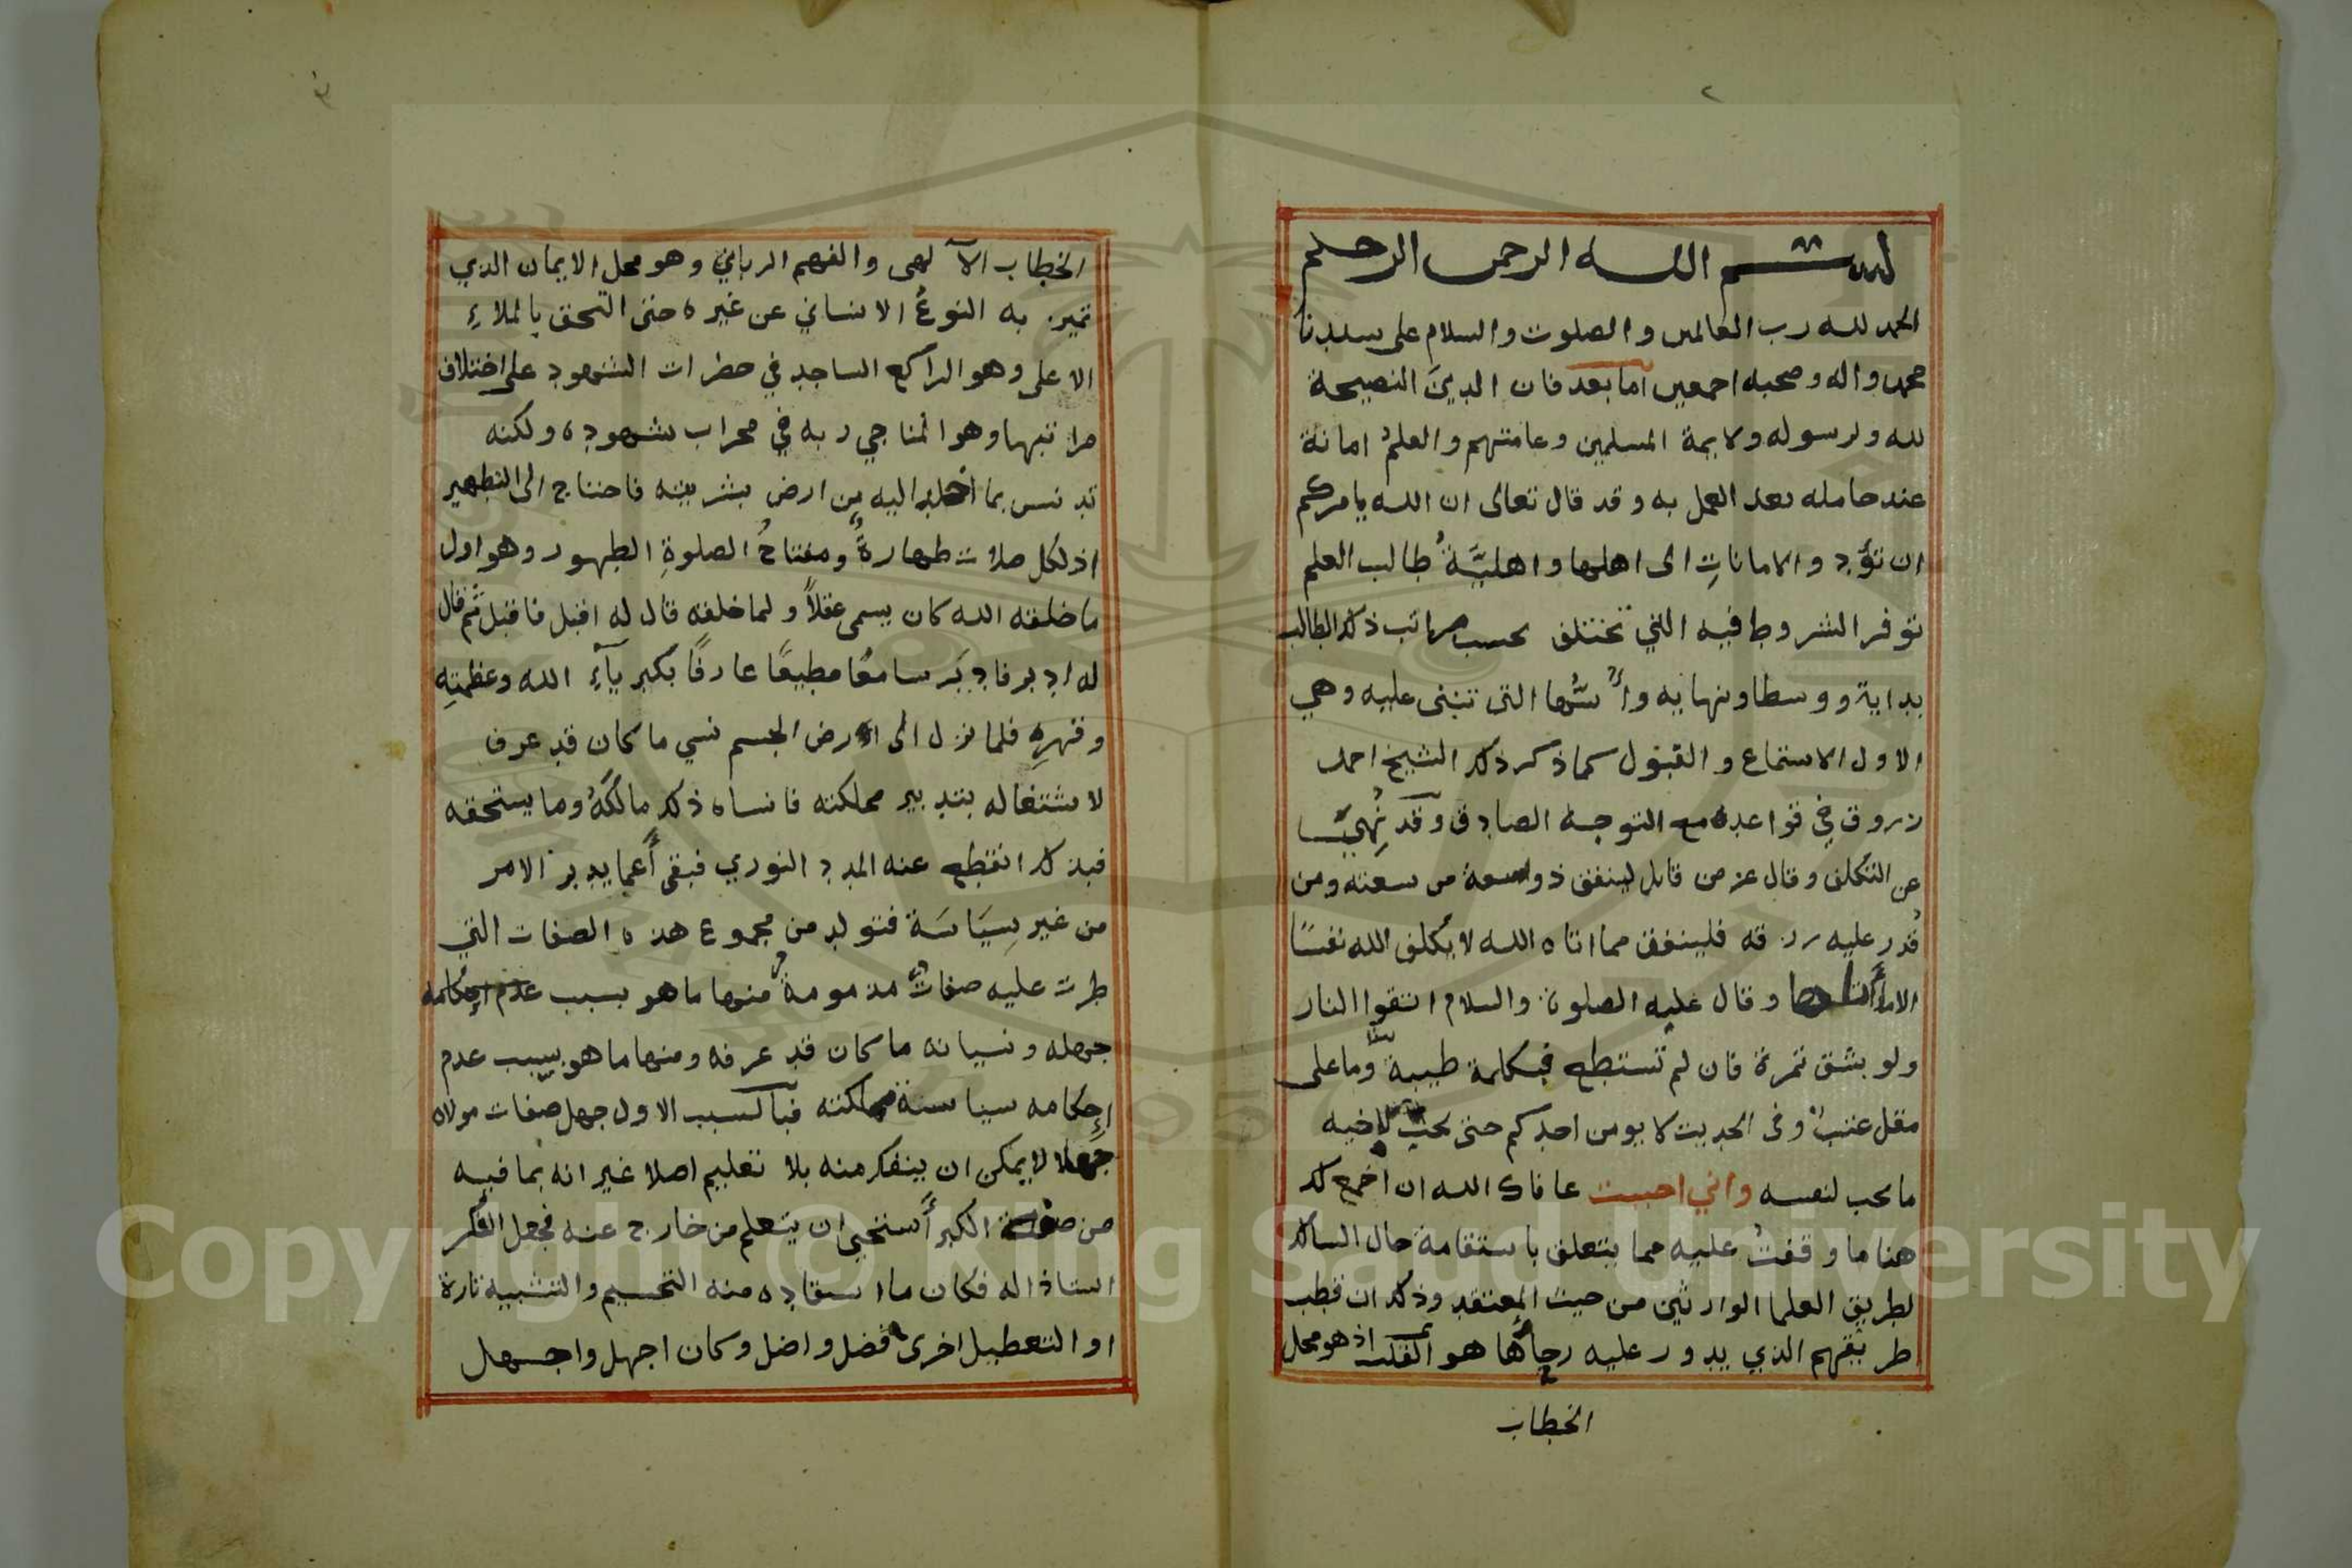 ٢
بسم الله الرحمن الرحيم
الحمد لله رب العالمين والصلوت والسلام على سيدنا
محمد واله وصحبه اجمعين اما بعد فان الدينَ النصيحة
لله ولرسوله ولايمة المسلمين وعامتهم والعلمُ امانة
عند حامله بعد العمل به وقد قال تعالى ان الله يامركم
ان تؤدوا الاماناتِ الى اهلها واهليَّةُ طالب العلم
توفر الشروط فيه التي تختلف بحسب مراتب ذلك الطالب
بداية ووسطا ونهاية وأسُّها التى تبنى عليه وهي
الاول الاستماع والقبول كما ذكر ذلك الشيخ احمد
زروق في قواعده مع التوجه الصادق وقد نُهِيَنا
عن التكلف وقال عز من قايل لينفق ذو سعة من سعته ومن
قُدر عليه رزقه فلينفق مما اتاه الله لا يكلف الله نفسًا
الا ما أتاها وقال عليه الصلوة والسلام اتقوا النار
ولو بشق تمرة فان لم تستطع فبكلمة طيبة وما على
مقل عتبٌ وفى الحديث لا يومن احدكم حتى يحب لاخيه
ما يحب لنفسه واني احببت عافاك الله ان اجمع لك
هنا ما وقفتُ عليه مما يتعلق باستقامة حال السالك
لطريق العلما الوارثين من حيث المعتقد وذلك ان قطب
طريقهم الذي يدور عليه رحاها هو القلب اذ هو محل
الخطاب
٣
الخطاب الآلهى والفهم الرباني وهو محل الايمان الذي
تميز به النوعُ الانساني عن غيره حتى التحق بالملاءِ
الاعلى وهو الراكع الساجد في حضرات الشهود على اختلاف
مراتبها وهو المناجي ربه في محراب شهوده ولكنه
تدنس بما اخلد اليه من ارض بشريته فاحتاج الى التطهير
اذ لكل صلات طهارةٌ ومفتاحُ الصلوةِ الطهور وهو اول
ما خلقه الله كان يسمى عقلاً ولما خلقه قال له اقبل فاقبل ثم قال
له ادبر فادبَر سامعًا مطيعًا عارفًا بكبريآءِ الله وعظمتِهِ
وقهرهِ فلما نزل الى ارض الجسم نسي ما كان قد عرف
لاشتغاله بتدبير مملكته فانساه ذلك مالكَهُ وما يستحقه
فبذلك انقطع عنه المدد النوري فبقى أعما يدبر الامر
من غير سِيَاسَة فتولد من مجموع هذه الصفات التي
طرت عليه صفاتٌ مذمومةٌ منها ما هو بسبب عدم إحكامه
جهله ونسيانه ما كان قد عرفه ومنها ما هو بسبب عدم
إحكامه سياسة مملكته فبالسبب الاول جهل صفات مولاه
جهلا لا يمكن ان ينفك منه بلا تعليم اصلا غير انه بما فيه
من صفة الكبر أستحيى ان يتعلم من خارج عنه فجعل الفكر
استاذا له فكان ما استفاده منه التجسيم والتشبيه تارة
او التعطيل اخرى فضل واضل وكان اجهل واجهل
Copyright © King Saud University